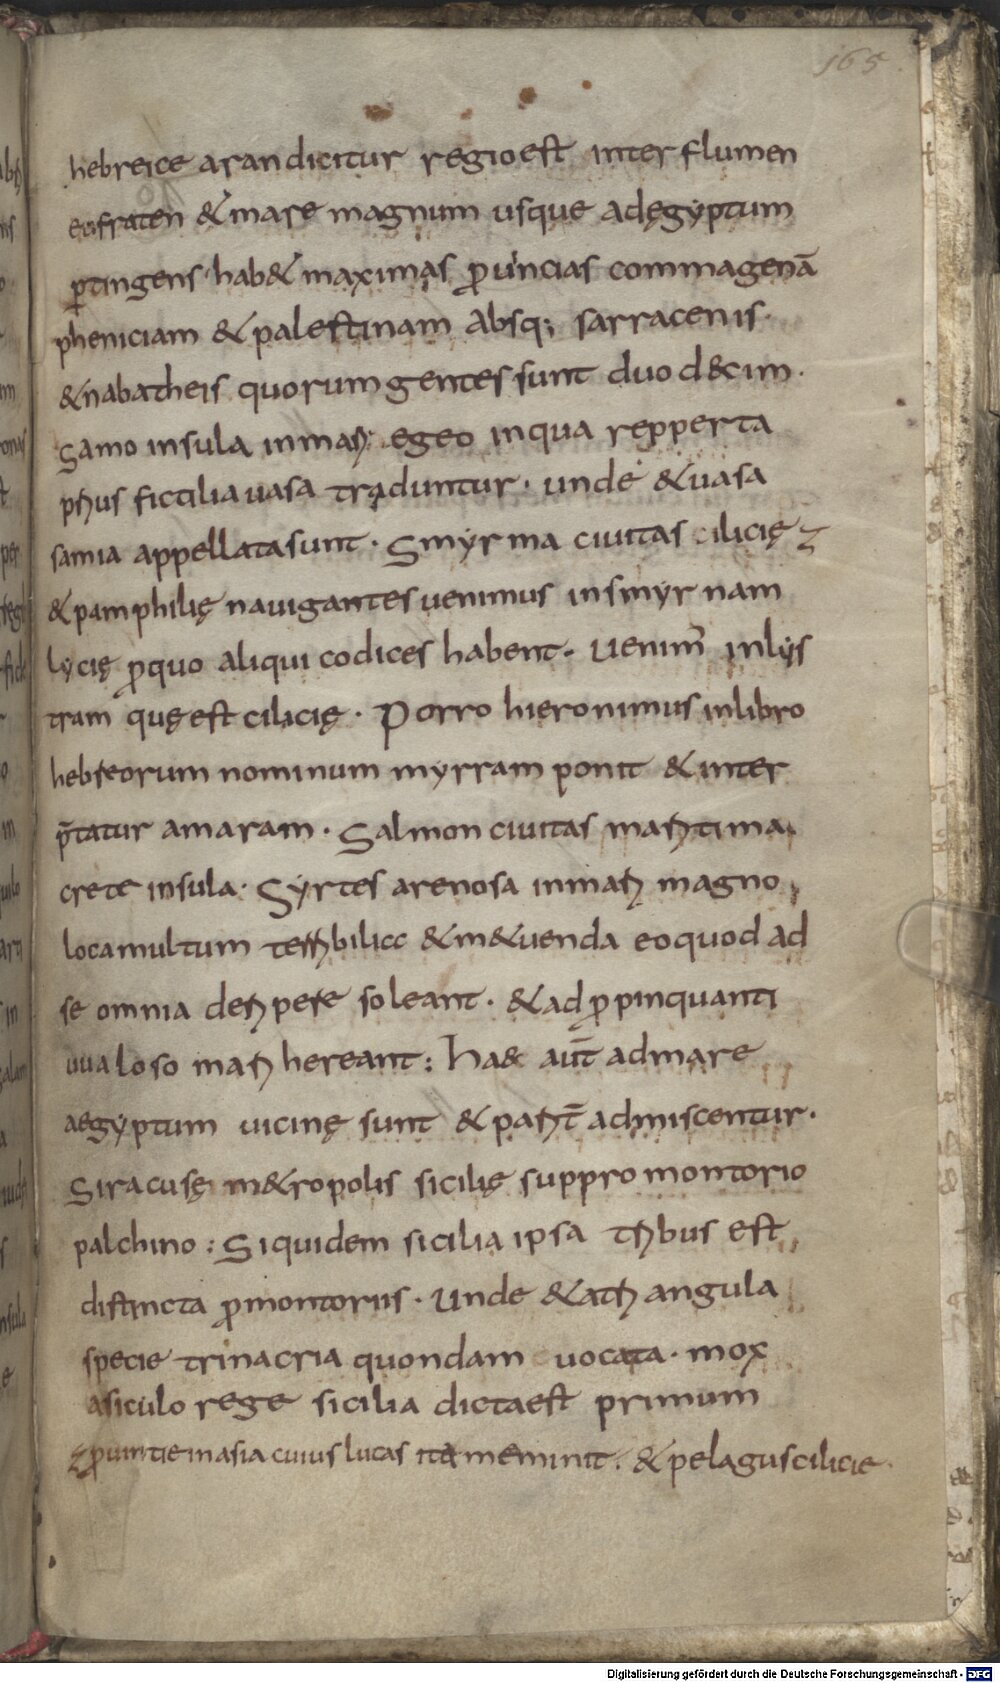 165
hebreice aran dicitur regio est inter flumen
eufraten & mare magnum usque ad ęgyptum
ꝑtingens · hab& maximas ꝓuincias commagenā
pheniciam & palestinam absq; sarracenis ·
& nabatheis quorum gentes sunt duodecim ·
Samo insula in mari egeo in qua repperta
prius fictilia uasa traduntur · unde & uasa
samia appellata sunt · Smyrma ciuitas cilicię
& pamphilię nauigantes uenimus in smyrnam
lycię ꝓ quo aliqui codices habent · Uenim̄ in lys
tram quę est cilicię · Porro hieronimus in libro
hebreorum nominum myrram ponit & inter
p̄tatur amaram · Salmon ciuitas maritima
crete insula · Syrtes arenosa in mari magno
loca multum terribilia & m&uenda eo quod ad
se omnia deripere soleant · & adꝓpinquanti
uualoso mari hereant : Haec aut̄ ad mare
aegyptum uicinę sunt & parit̄ admiscentur ·
Siracusę m&ropolis sicilię sup promontorio
palchino : Siquidem sicilia ipsa tribus est
distincta ꝓmontoriis · Unde & a triangula
specie trinacria quondam uocata · mox
a siculo rege sicilia dicta est primum
ꝓuintie in asia cuius lucas ita meminit · & pelagus cilicie ·
Digitalisierung gefördert durch die Deutsche Forschungsgemeinschaft - DFG